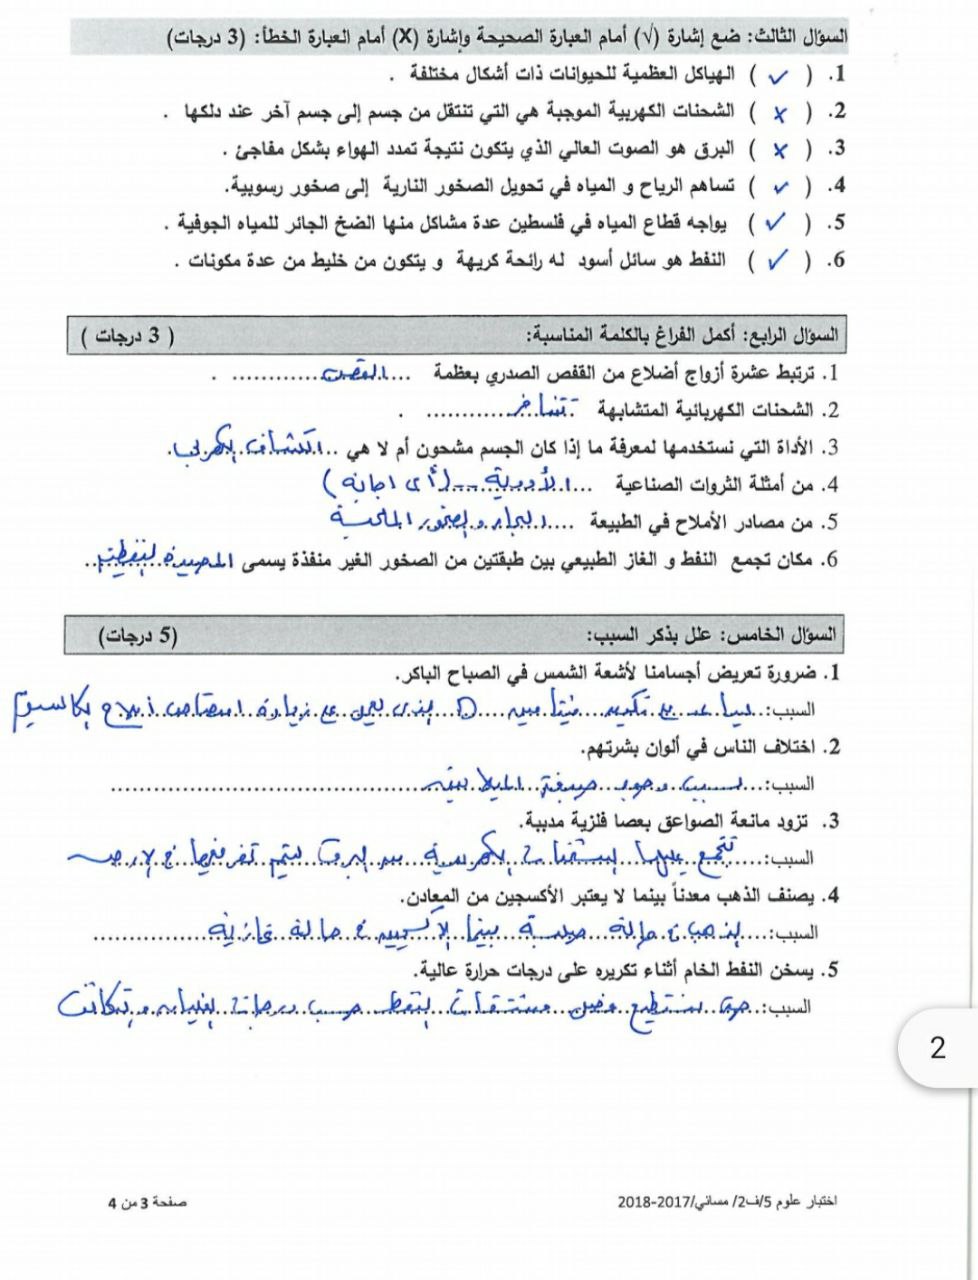 السؤال الثالث: ضع إشارة (√) أمام العبارة الصحيحة وإشارة (X) أمام العبارة الخطأ: (3 درجات)
1. ( ✓ ) الهياكل العظمية للحيوانات ذات أشكال مختلفة .
2. ( x ) الشحنات الكهربية الموجبة هي التي تنتقل من جسم إلى جسم آخر عند دلكها .
3. ( x ) البرق هو الصوت العالي الذي يتكون نتيجة تمدد الهواء بشكل مفاجئ .
4. ( ✓ ) تساهم الرياح و المياه في تحويل الصخور النارية إلى صخور رسوبية.
5. ( ✓ ) يواجه قطاع المياه في فلسطين عدة مشاكل منها الضخ الجائر للمياه الجوفية .
6. ( ✓ ) النفط هو سائل أسود له رائحة كريهة و يتكون من خليط من عدة مكونات .
السؤال الرابع: أكمل الفراغ بالكلمة المناسبة: ( 3 درجات )
1. ترتبط عشرة أزواج أضلاع من القفص الصدري بعظمة ...القص............ .
2. الشحنات الكهربائية المتشابهة تتنافر............ .
3. الأداة التي نستخدمها لمعرفة ما إذا كان الجسم مشحون أم لا هي ..الكشاف الكهربي.
4. من أمثلة الثروات الصناعية ...الأدوية...(أي اجابة)
5. من مصادر الأملاح في الطبيعة ....البحار والصخور الملحية
6. مكان تجمع النفط و الغاز الطبيعي بين طبقتين من الصخور الغير منفذة يسمى المصيدة النفطية..
السؤال الخامس: علل بذكر السبب: (5 درجات)
1. ضرورة تعريض أجسامنا لأشعة الشمس في الصباح الباكر.
السبب:..يساعد على تكوين فيتامين D الذي يعمل على زيادة امتصاص أملاح الكالسيوم
2. اختلاف الناس في ألوان بشرتهم.
السبب:...بسبب وجود صبغة الميلانين......................................
3. تزود مانعة الصواعق بعصا فلزية مدببة.
السبب:.....تتجمع عليها الشحنات الكهربية من البرق ليتم تفريغها في الأرض
4. يصنف الذهب معدناً بينما لا يعتبر الأكسجين من المعادن.
السبب:....الذهب في حالة صلبة بينما الأكسجين في حالة غازية..............
5. يسخن النفط الخام أثناء تكريره على درجات حرارة عالية.
السبب:..حتى نستطيع فصل مشتقات النفط حسب درجات الغليان والتكاثف
2
اختبار علوم 5/ف2/ مسائي/2017-2018
صفحة 3 من 4